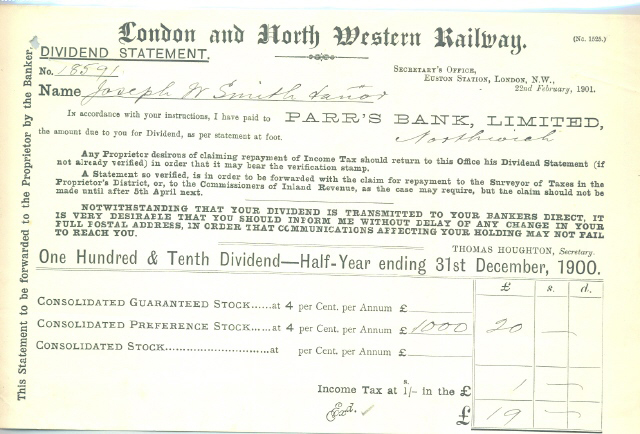 London and North Western Railway.
(No. 1525.)
DIVIDEND STATEMENT.
No. 18591
SECRETARY'S OFFICE,
EUSTON STATION, LONDON, N.W.,
22nd February, 1901.
Name Joseph W Smith & anor
In accordance with your instructions, I have paid to PARR'S BANK, LIMITED,
the amount due to you for Dividend, as per statement at foot. Northwich
Any Proprietor desirous of claiming repayment of Income Tax should return to this Office his Dividend Statement (if
not already verified) in order that it may bear the verification stamp.
A Statement so verified, is in order to be forwarded with the claim for repayment to the Surveyor of Taxes in the
Proprietor's District, or, to the Commissioners of Inland Revenue, as the case may require, but the claim should not be
made until after 5th April next.
NOTWITHSTANDING THAT YOUR DIVIDEND IS TRANSMITTED TO YOUR BANKERS DIRECT, IT
IS VERY DESIRABLE THAT YOU SHOULD INFORM ME WITHOUT DELAY OF ANY CHANGE IN YOUR
FULL POSTAL ADDRESS, IN ORDER THAT COMMUNICATIONS AFFECTING YOUR HOLDING MAY NOT FAIL
TO REACH YOU.
THOMAS HOUGHTON, Secretary.
One Hundred & Tenth Dividend—Half-Year ending 31st December, 1900.
£ s. d.
CONSOLIDATED GUARANTEED STOCK......at 4 per Cent. per Annum £
CONSOLIDATED PREFERENCE STOCK...at 4 per Cent. per Annum £ 1000 20 —
CONSOLIDATED STOCK........................at per Cent. per Annum £
Income Tax at 1s/- in the £ 1 —
Exd. £ 19 —
This Statement to be forwarded to the Proprietor by the Banker.